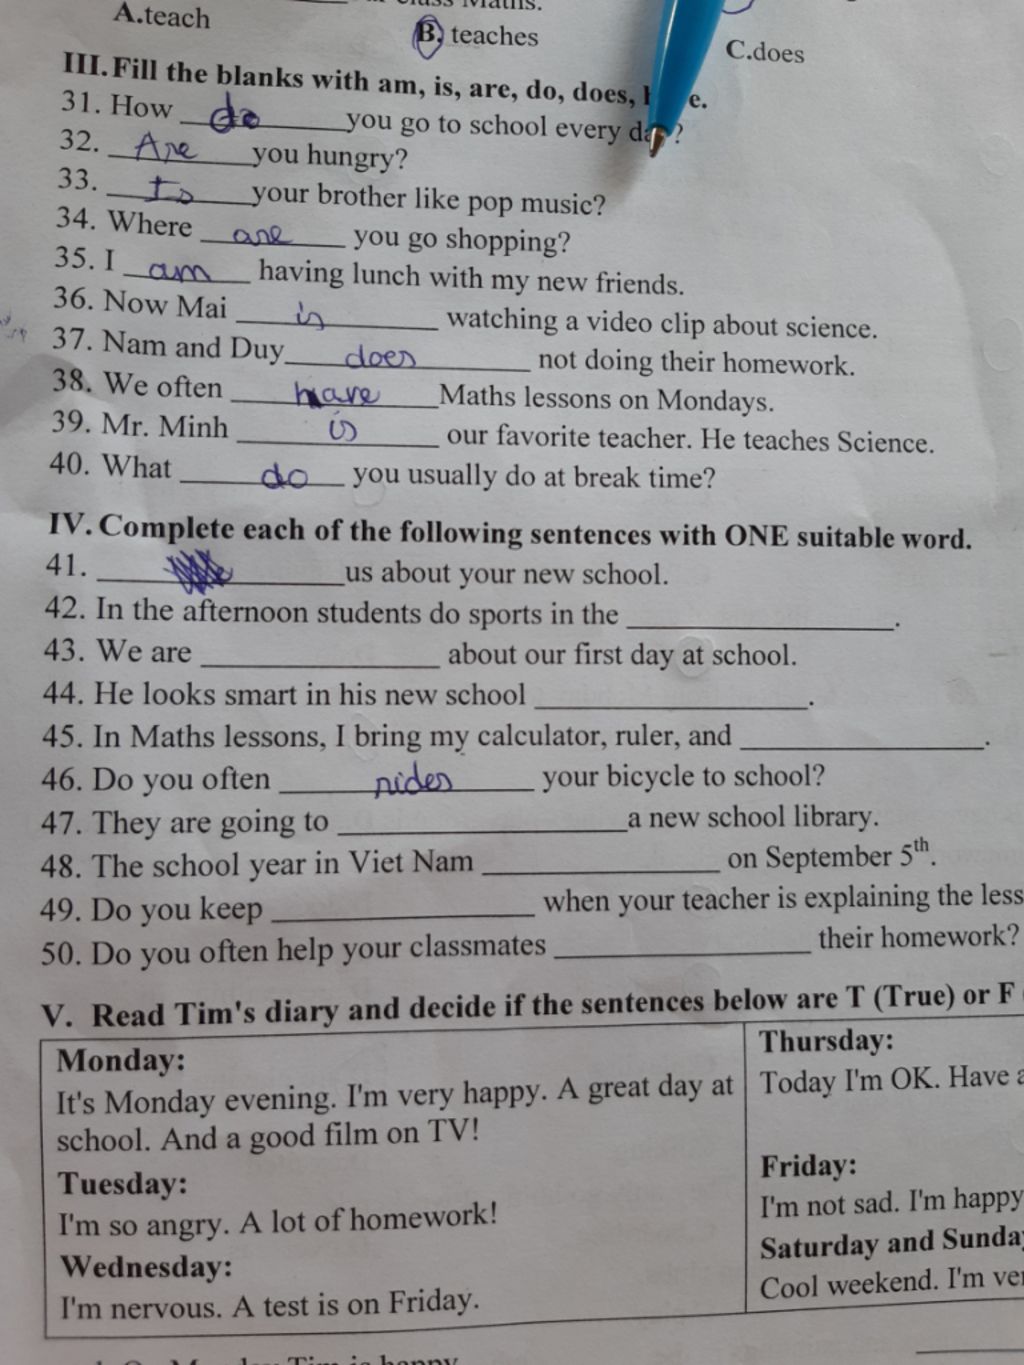 A.teach
B. teaches
C.does
III. Fill the blanks with am, is, are, do, does,
31. How do you go to school every
32. Are you hungry?
33. Is your brother like pop music?
34. Where are you go shopping?
35. I am having lunch with my new friends.
36. Now Mai is watching a video clip about science.
37. Nam and Duy does not doing their homework.
38. We often have Maths lessons on Mondays.
39. Mr. Minh is our favorite teacher. He teaches Science.
40. What do you usually do at break time?
IV. Complete each of the following sentences with ONE suitable word.
41. ____ us about your new school.
42. In the afternoon students do sports in the ____.
43. We are ____ about our first day at school.
44. He looks smart in his new school ____.
45. In Maths lessons, I bring my calculator, ruler, and ____.
46. Do you often rides your bicycle to school?
47. They are going to ____ a new school library.
48. The school year in Viet Nam ____ on September 5th.
49. Do you keep ____ when your teacher is explaining the less
50. Do you often help your classmates ____ their homework?
V. Read Tim's diary and decide if the sentences below are T (True) or F
Monday:
It's Monday evening. I'm very happy. A great day at
school. And a good film on TV!
Tuesday:
I'm so angry. A lot of homework!
Wednesday:
I'm nervous. A test is on Friday.
Thursday:
Today I'm OK. Have a
Friday:
I'm not sad. I'm happy
Saturday and Sunday
Cool weekend. I'm ver